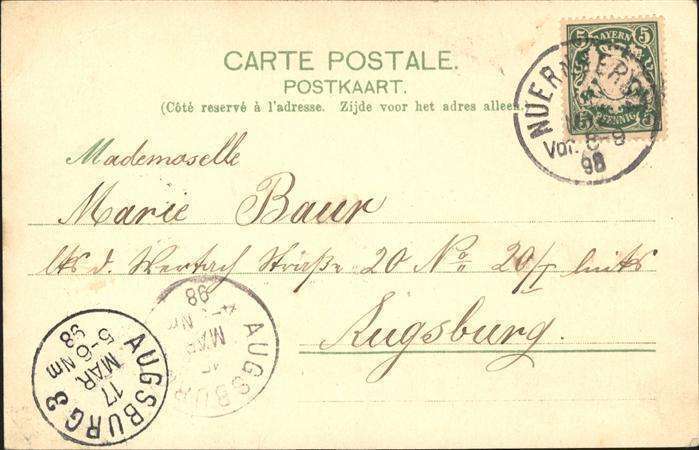 CARTE POSTALE.
POSTKAART.
(Côté reservé à l'adresse. Zijde voor het adres alleen.
5 BAYERN 5
5 PFENNIG 5
NUERNBERG
Vor. 8-9
98
Mademoselle
Marie Baur
d. Wertach Straße 20 No 20/I links
Augsburg.
AUGSBURG
MAR
98
AUGSBURG 3
17
MAR
5-6 Nm
98